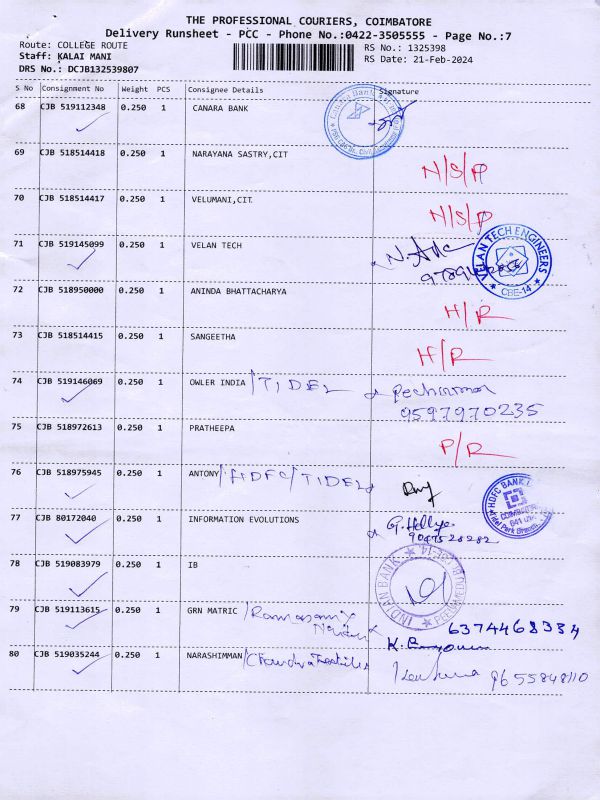 THE PROFESSIONAL COURIERS, COIMBATORE
Delivery Runsheet - PCC - Phone No.:0422-3505555 - Page No.:7
Route: COLLEGE ROUTE RS No.: 1325398
Staff: KALAI MANI RS Date: 21-Feb-2024
DRS No.: DCJB132539807
S No Consignment No Weight PCS Consignee Details Signature
68 CJB 519112348 0.250 1 CANARA BANK
69 CJB 518514418 0.250 1 NARAYANA SASTRY,CIT N/S/P
70 CJB 518514417 0.250 1 VELUMANI,CIT N/S/P
71 CJB 519145099 0.250 1 VELAN TECH
VELAN TECH ENGINEERS
CBE-14
72 CJB 518950000 0.250 1 ANINDA BHATTACHARYA H/R
73 CJB 518514415 0.250 1 SANGEETHA H/R
74 CJB 519146069 0.250 1 OWLER INDIA /TIDEL
9597970235
75 CJB 518972613 0.250 1 PRATHEEPA P/R
76 CJB 518975945 0.250 1 ANTONY /HDFC/TIDEL
HDFC BANK
77 CJB 80172040 0.250 1 INFORMATION EVOLUTIONS
78 CJB 519083979 0.250 1 IB
INDIAN BANK
79 CJB 519113615 0.250 1 GRN MATRIC
6374468334
80 CJB 519035244 0.250 1 NARASHIMMAN
9655848110